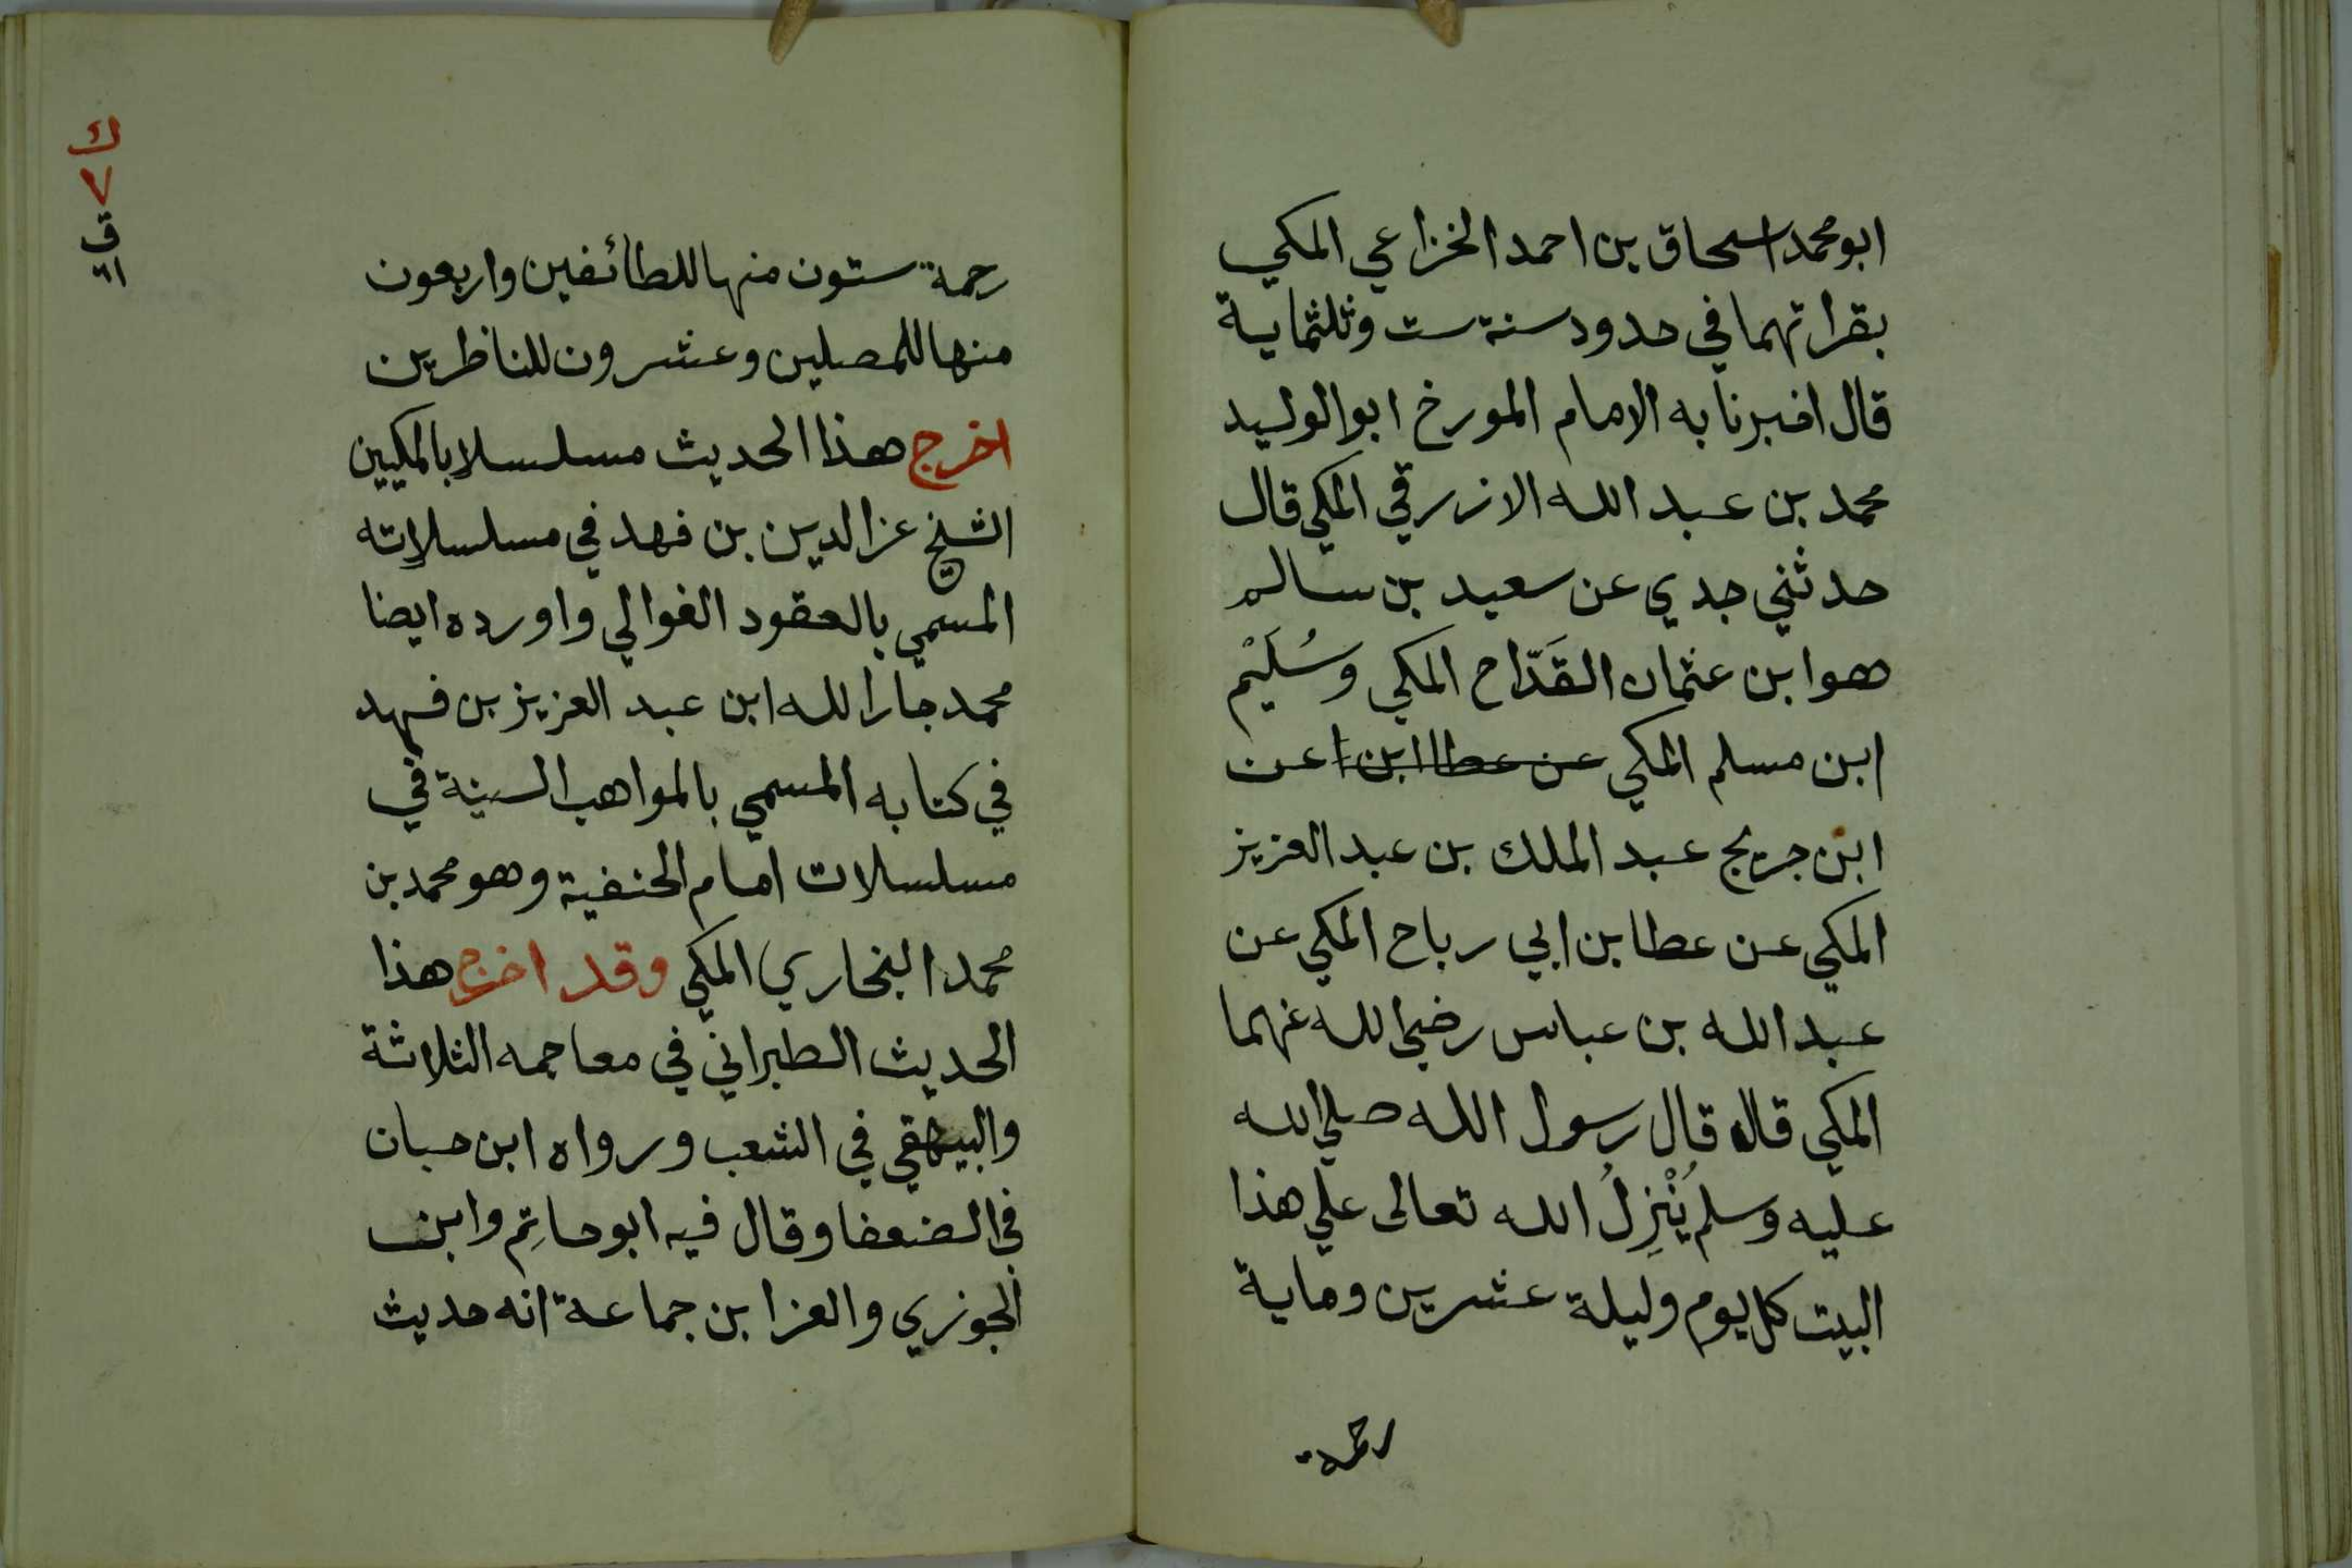 ابو محمد اسحاق بن احمد الخزاعي المكي
بقراتهما في حدود سنة ست وثلثماية
قال اخبرنا به الامام المورخ ابو الوليد
محمد بن عبد الله الازرقي المكي قال
حدثني جدي عن سعيد بن سالم
هو ابن عثمان القَدّاح المكي وسُلَيْم
ابن مسلم المكي عن عطا ابن ا عن
ابن جريج عبد الملك بن عبد العزيز
المكي عن عطا بن ابي رباح المكي عن
عبد الله بن عباس رضي الله عنهما
المكي قال قال رسول الله صلي الله
عليه وسلم يُنْزِلُ الله تعالى علي هذا
البيت كل يوم وليلة عشرين وماية
رحمة
رحمة ستون منها للطائفين واربعون
منها للمصلين وعشرون للناظرين
اخرج هذا الحديث مسلسلا بالمكيين
الشيخ عز الدين بن فهد في مسلسلاته
المسمي بالعقود الغوالي واورده ايضا
محمد جار الله ابن عبد العزيز بن فهد
في كتابه المسمي بالمواهب السنية في
مسلسلات امام الحنفية وهو محمد بن
محمد البخاري المكي وقد اخرج هذا
الحديث الطبراني في معاجمه الثلاثة
والبيهقي في الشعب ورواه ابن حبان
في الضعفا وقال فيه ابو حاتِم وابن
الجوزي والعز ابن جماعة انه حديث
ك
٧
ق